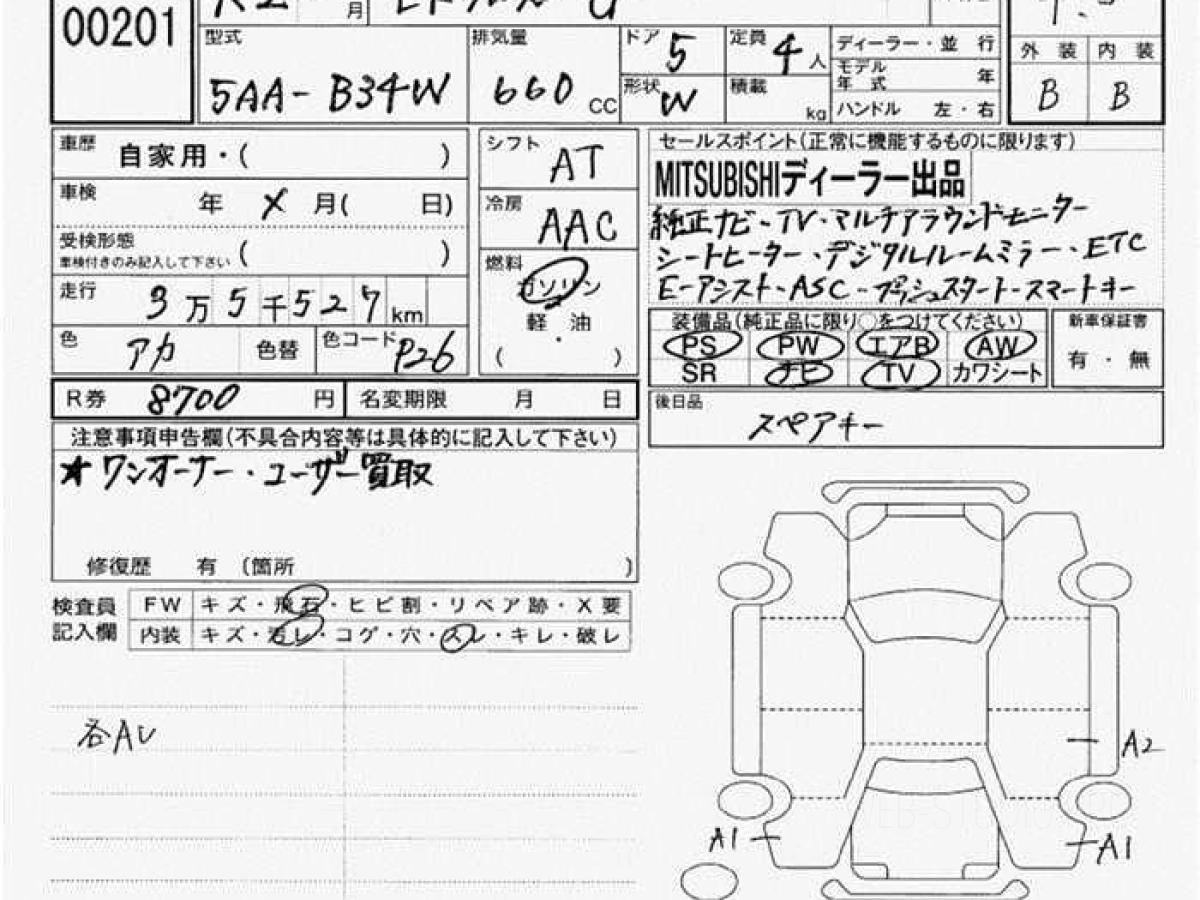 00201
月
型式 5AA-B34W
排気量 660 CC
ドア 5
定員 4人
形状 W
積載 kg
ディーラー・並行
モデル年式 年
ハンドル 左・右
外装 内装
B B
車歴 自家用・( )
車検 年 X 月( 日)
受検形態 ( )
車検付きのみ記入して下さい
走行 3万5千527km
色 アカ 色替 色コード P26
シフト AT
冷房 AAC
燃料
ガソリン
軽油
・
( )
セールスポイント(正常に機能するものに限ります)
MITSUBISHIディーラー出品
純正ナビ・TV・マルチアラウンドモニター
シートヒーター・デジタルルームミラー・ETC
E-アシスト・ASC・プッシュスタート・スマートキー
装備品(純正品に限り○をつけてください)
PS PW エアB AW
SR ナビ TV カワシート
新車保証書
有・無
R券 8700 円 名変期限 月 日
後日品 スペアキー
注意事項申告欄(不具合内容等は具体的に記入して下さい)
★ワンオーナー・ユーザー買取
修復歴 有 〔箇所 〕
検査員記入欄
FW キズ・飛石・ヒビ割・リペア跡・X要
内装 キズ・汚レ・コゲ・穴・スレ・キレ・破レ
各AU
A2
A1
A1